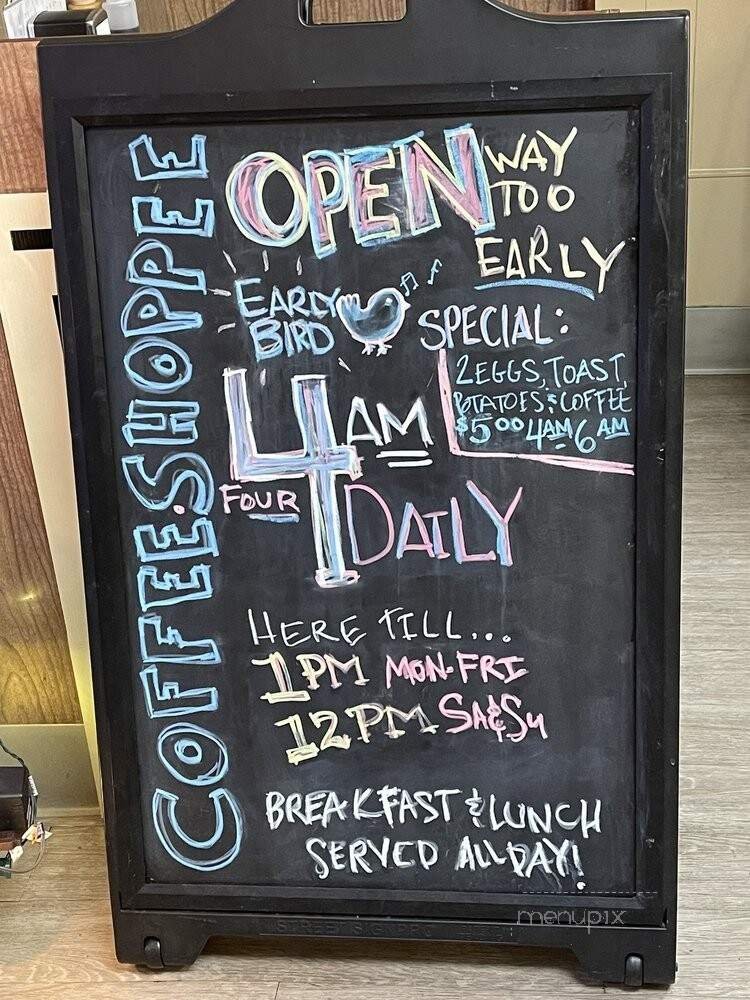 COFFEE.SHOPPEE
OPEN WAY
TOO
EARLY
EARLY
BIRD
SPECIAL:
2 EGGS, TOAST,
POTATOES & COFFEE
$5.00 4AM 6 AM
4 AM
FOUR
DAILY
HERE TILL...
1PM MON-FRI
12PM SA&SU
BREAKFAST & LUNCH
SERVED ALL DAY!
menupix